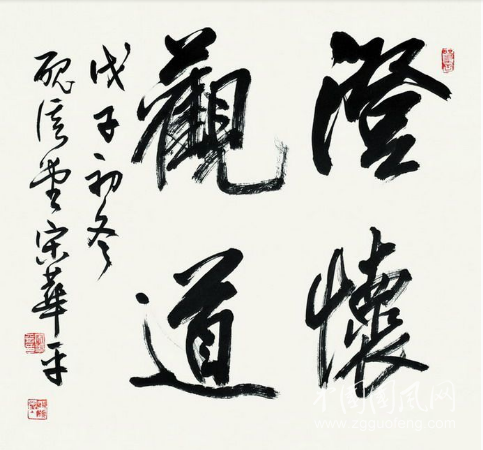 澄懷
觀道
戊子初冬
醜信堂宋華平
中国國风网
www.zgguofeng.com